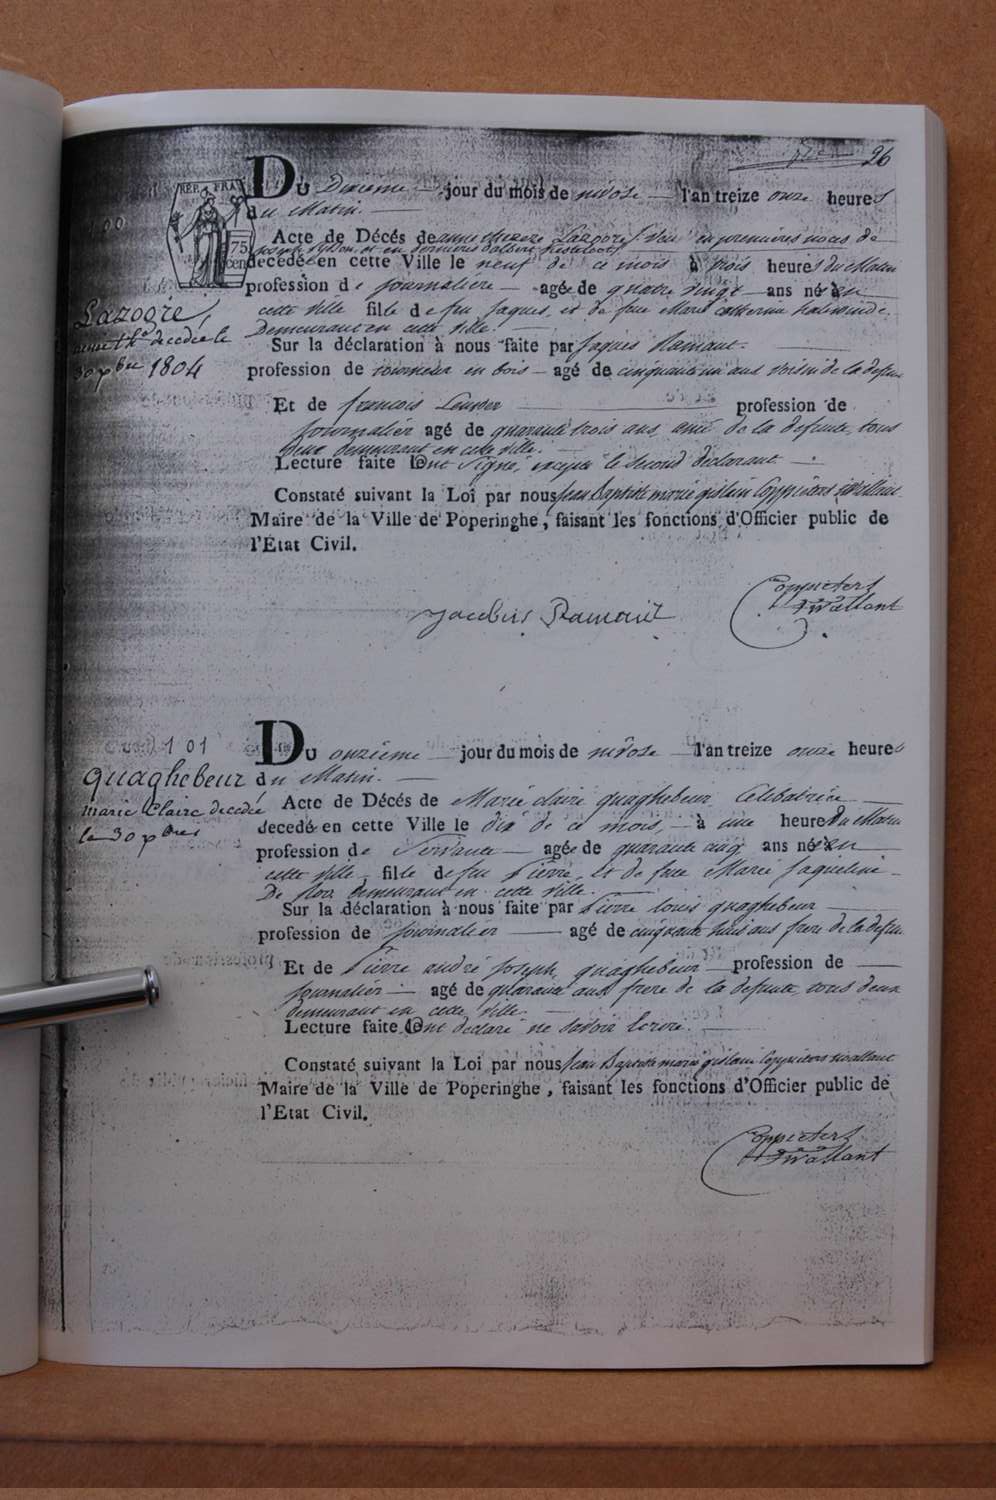 26
REP. FRA.
75
cen
100
Lazoore,
anne th.e decedée le
30 xbre 1804
DU Dixieme jour du mois de nivôse l'an treize onze heures
du Matin.
Acte de Décés de anne therese Lazoore, en premieres noces de
decedée en cette Ville le neuf de ce mois à trois heures du Matin
profession de journaliere agée de quatre vingt ans née en
cette ville fille de feu Jaques, et de feue Marie catherine
Demeurant en cette ville.
Sur la déclaration à nous faite par Jaques Ramaut.
profession de tourneur en bois agé de cinquante un ans voisin de la defunte
Et de francois profession de
journalier agé de quarante trois ans, ami de la defunte, tous
deux demeurant en cette ville.
Lecture faite ont signé, excepté le second declarant.
Constaté suivant la Loi par nous Jean Baptiste marie gislain Coppieters
Maire de la Ville de Poperinghe, faisant les fonctions d'Officier public de
l'État Civil.
Jacobus Ramaut
Coppieters
Twallant
101
quaghebeur
marie Claire decedée
le 30 xbre
DU onzieme jour du mois de nivôse l'an treize onze heures
du Matin.
Acte de Décés de Marie claire quaghebeur Celibataire
decedée en cette Ville le dix de ce mois, à une heure du Matin
profession de Servante agée de quarante cinq ans née en
cette ville, fille de feu Pierre, et de feue Marie Jaqueline
De demeurant en cette ville.
Sur la déclaration à nous faite par Pierre louis quaghebeur
profession de journalier agé de cinquante huit ans frere de la defunte
Et de Pierre andré Joseph quaghebeur profession de
journalier agé de quarante ans frere de la defunte, tous deux
demeurant en cette ville.
Lecture faite ont declaré ne savoir Ecrire.
Constaté suivant la Loi par nous Jean Baptiste marie gislain Coppieters
Maire de la Ville de Poperinghe, faisant les fonctions d'Officier public de
l'État Civil.
Coppieters
Twallant